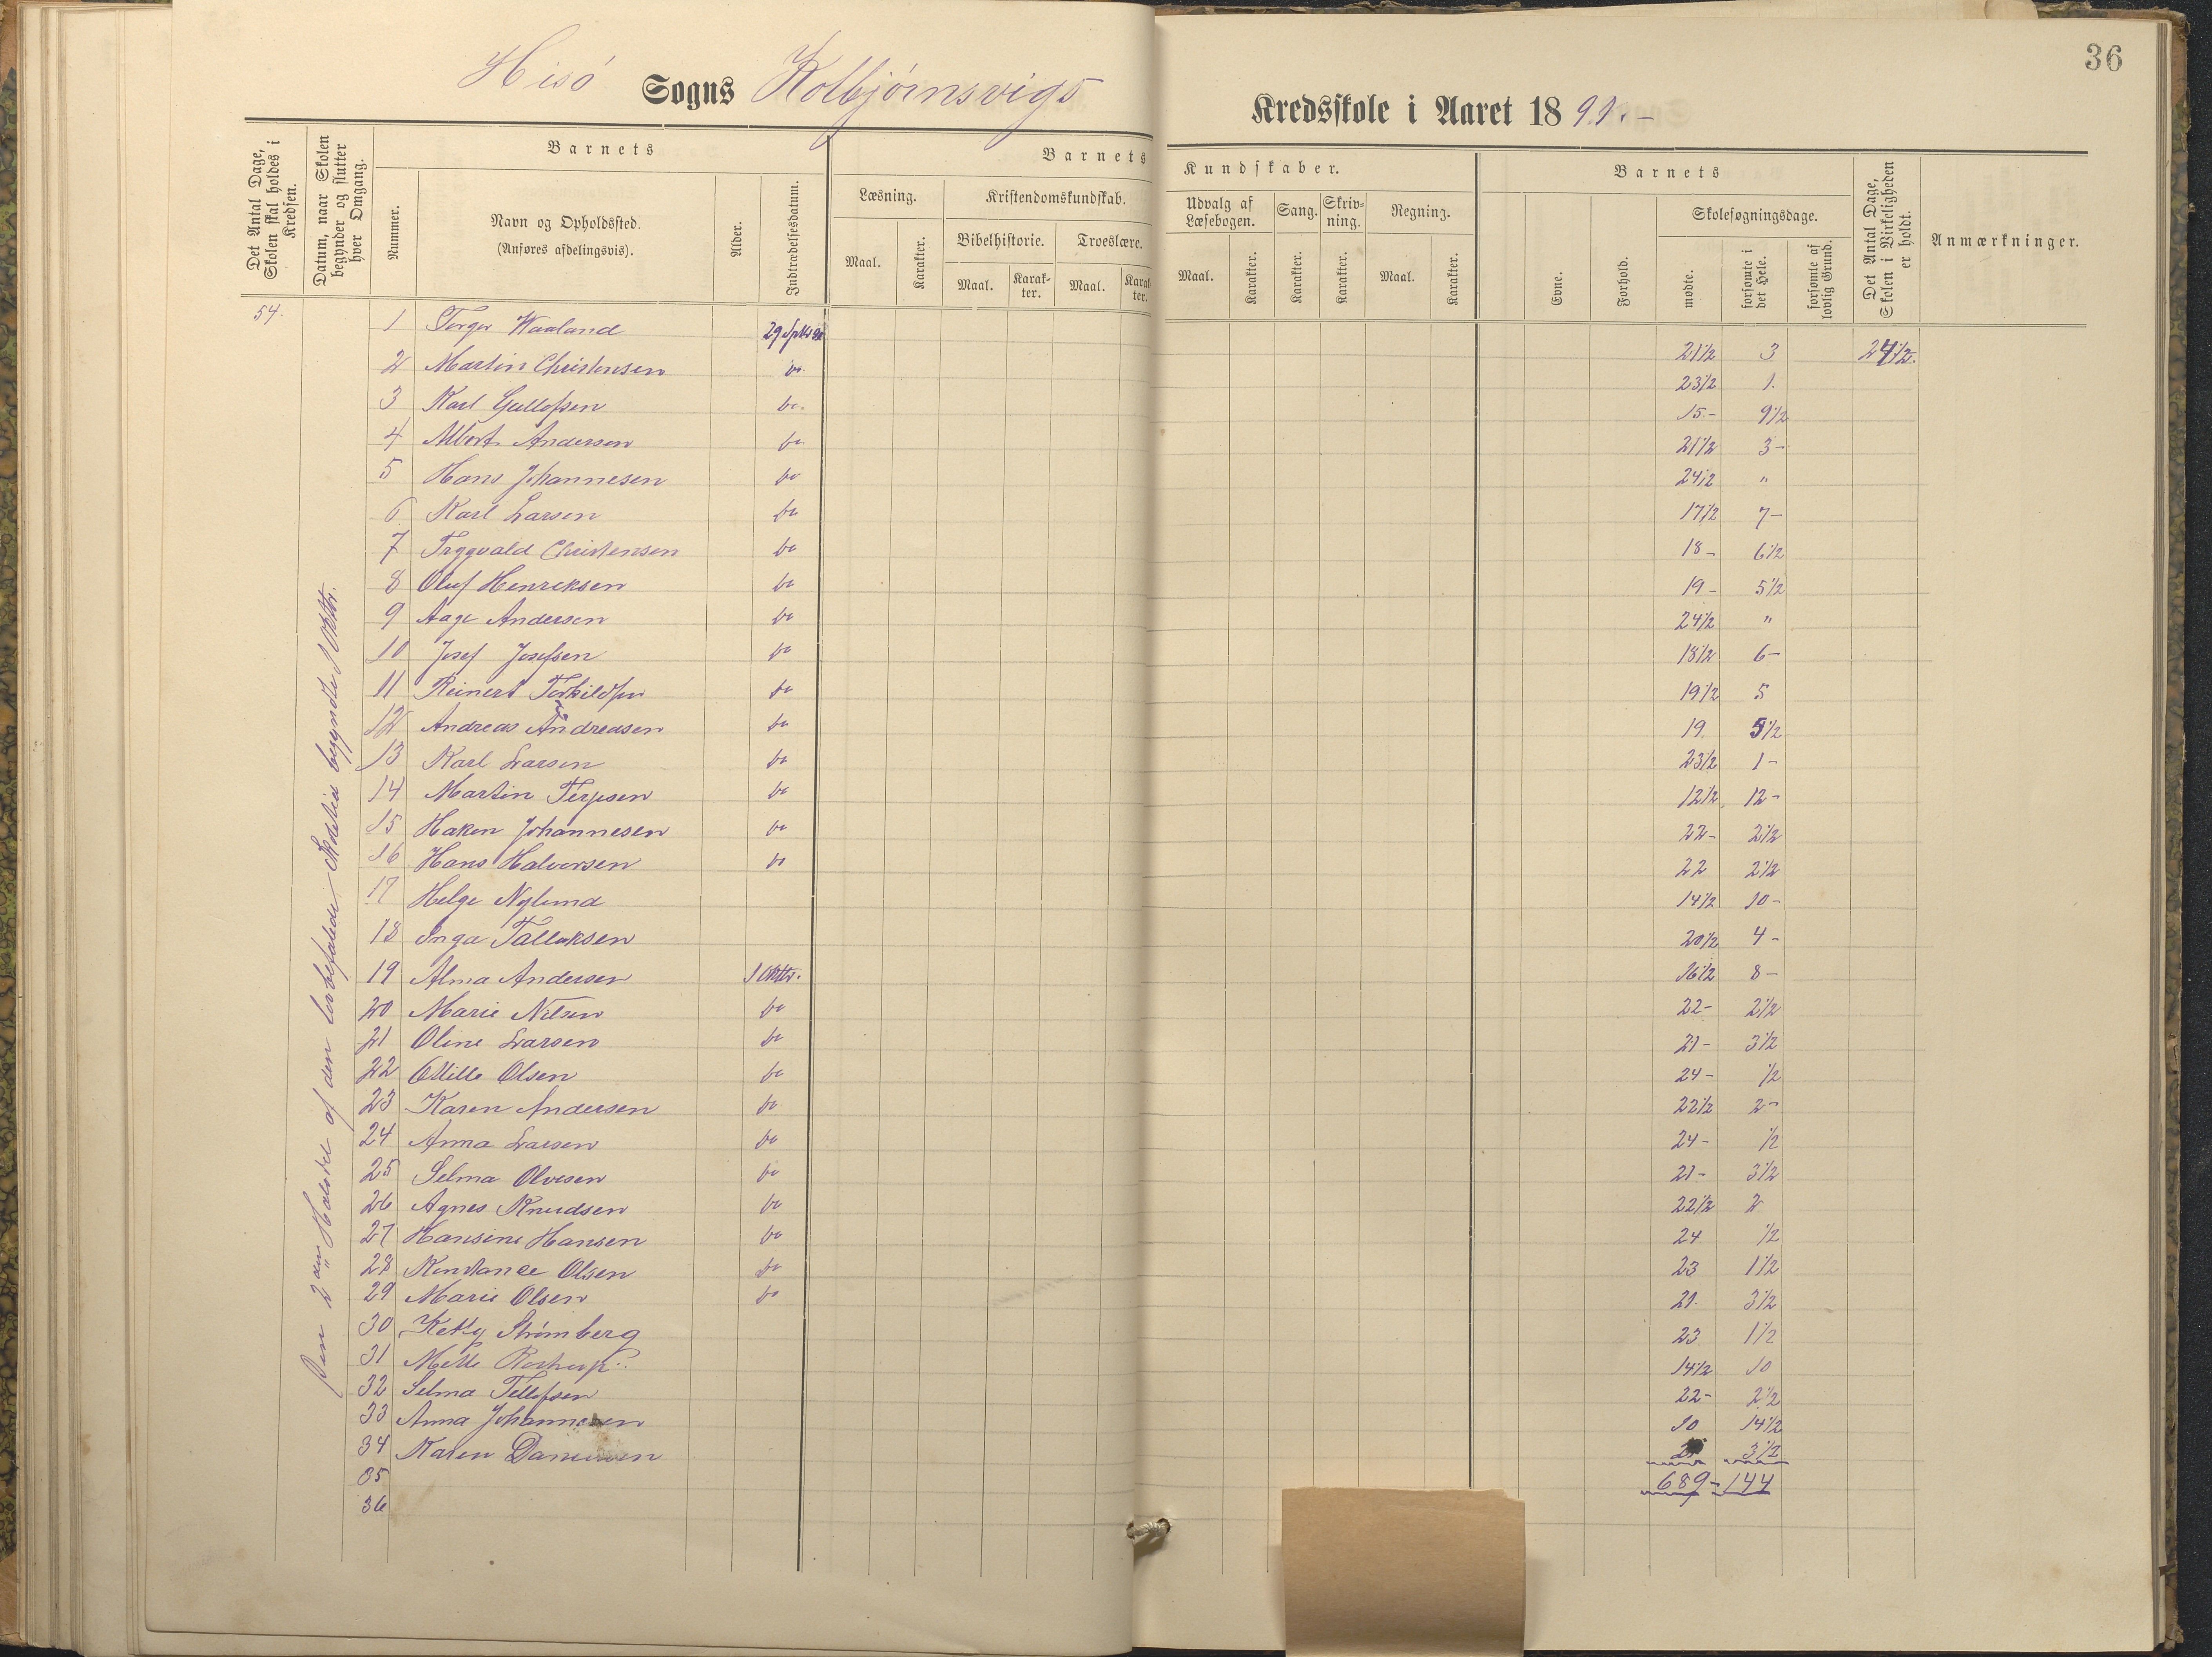 36
Hisö Sogns Kolbjörnsvigs Kredsskole i Aaret 1891.-
Det Antal Dage, Skolen skal holdes i Kredsen.
Datum, naar Skolen begynder og slutter hver Omgang.
Barnets
Nummer.
Navn og Opholdssted.
(Anføres afdelingsvis).
Alder.
Indtrædelsesdatum.
Barnets Kundskaber.
Læsning.
Maal.
Karakter.
Kristendomskundskab.
Bibelhistorie.
Maal.
Karakter.
Troeslære.
Maal.
Karakter.
Udvalg af Læsebogen.
Maal.
Karakter.
Sang.
Karakter.
Skrivning.
Karakter.
Regning.
Maal.
Karakter.
Barnets
Evne.
Forhold.
Skolesøgningsdage.
mødte.
forsømte i det Hele.
forsømte af lovlig Grund.
Det Antal Dage, Skolen i Virkeligheden er holdt.
Anmærkninger.
54.
Den 2den Halvdel af den lovbefalede Skoletid begyndte 1 Oktbr.
1 Torger Waaland 21 1/2 3 24 1/2.
2 Martin Christensen do. 23 1/2 1.
3 Karl Gullofsen do. 15- 9 1/2
4 Albert Andersen do 21 1/2 3-
5 Hans Johannesen do 24 1/2 "
6 Karl Larsen do 17 1/2 7-
7 Trygvald Christensen do 18- 6 1/2
8 Oluf Henreksen do 19- 5 1/2
9 Aage Andersen do 24 1/2 "
10 Josef Josefsen do 18 1/2 6-
11 Reinert Torkildsen do 19 1/2 5
12 Andreas Andreasen do 19. 5 1/2
13 Karl Larsen do 23 1/2 1-
14 Martin Terjesen do 12 1/2 12-
15 Haken Johannesen do 22- 2 1/2
16 Hans Halvorsen do 22 2 1/2
17 Helge Nylund 14 1/2 10-
18 Inga Tallaksen 20 1/2 4-
19 Alma Andersen 1 Oktbr. 16 1/2 8-
20 Marie Nilsen do 22- 2 1/2
21 Oline Larsen do 21- 3 1/2
22 Olsen do 24- 1/2
23 Karen Andersen do 22 1/2 2-
24 Anna Larsen do 24- 1/2
25 Selma Olvesen do 21- 3 1/2
26 Agnes Knudsen do 22 1/2 2
27 Hansine Hansen do 24 1/2
28 Konstance Olsen do 23 1 1/2
29 Marie Olsen do 21. 3 1/2
30 Ketty Strömberg 23 1 1/2
31 14 1/2 10
32 Selma Tellefsen 22- 2 1/2
33 Anna Johannesen 10 14 1/2
34 Karen Danielsen 3 1/2
35 689- 144
36